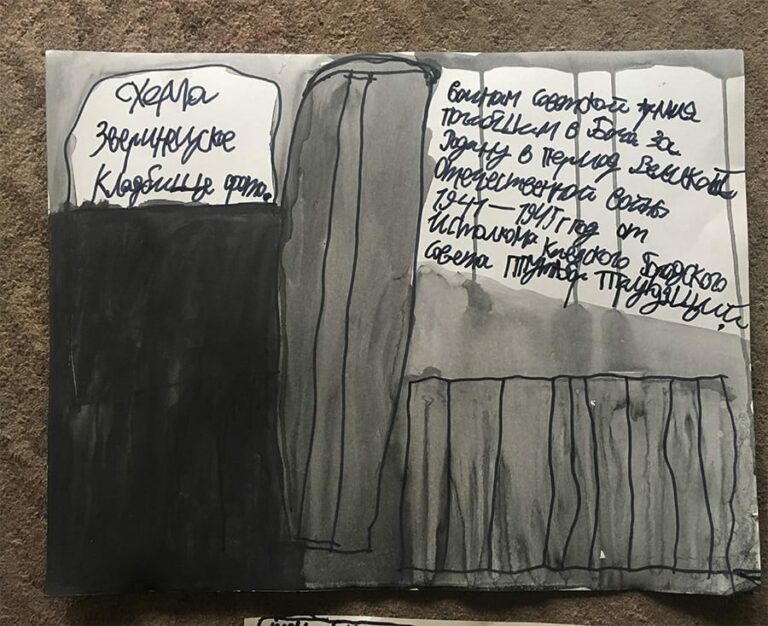 схема
Зверинецкое
Кладбище фото.
воинам Советской армия
погибшим в боях за
Родину в период Великой
Отечественной войны
1941—1945 год от
Исполкома Киевского Городского
совета трудящий.